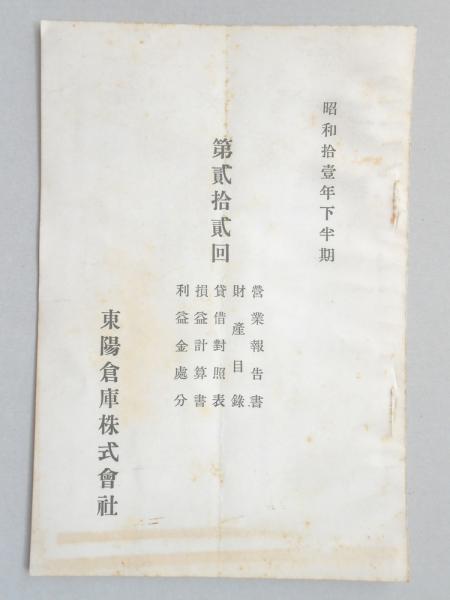 昭和拾壹年下半期
第貳拾貳回
營業報告書
財產目錄
貸借對照表
損益計算書
利益金處分
東陽倉庫株式會社